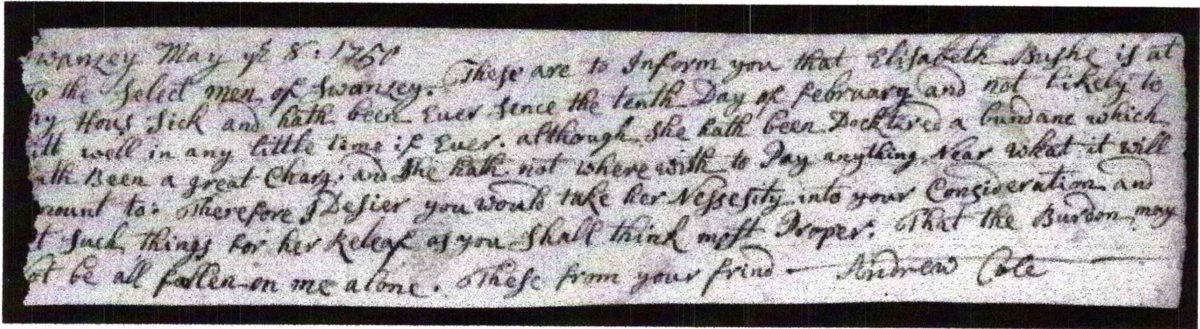 wanzey May ye 8. 1750
o the Select men of Swanzey. These are to Inform you that Elisabeth Bushe is at
y Hous Sick and hath been Ever Sence the tenth Day of february and not likely to
itt well in any little time if Ever. although She hath been Docktered a bundanc which
ath Been a great Charg. and She hath not where with to Pay anything Near what it will
mount to. Therefore I Desier you would take her Nessesity into your Consideration and
t Such things for her Releaf as you Shall think most Proper. That the Burdon may
ot be all fallen on me alone. These from your frind - Andrew Cole